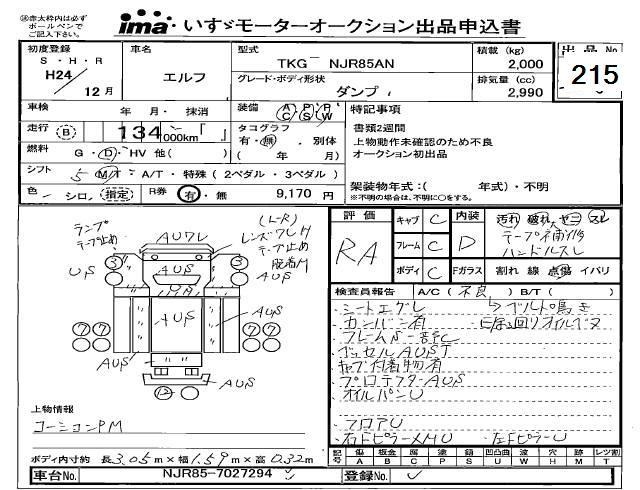 ※赤太枠内は必ず
ボールペンで
ご記入下さい。
ima いすゞモーターオークション出品申込書
初度登録 車名 型式 積載 (kg) 出品 No
S・H・R
H24 12月 エルフ TKG NJR85AN 2,000 215
グレード・ボディ形状 排気量 (cc)
ダンプ 2,990
車検 年 月・ 抹消 装備 A C P S P W 特記事項
走行 B 134 000km タコグラフ 有・無、別体 書類2週間
( 年 月) 上物動作未確認のため不良
オークション初出品
燃料 G・D・HV 他( )
シフト 5 M/T・A/T・特殊 (2ペダル・3ペダル)
架装物年式:( 年式)・不明
※不明の場合は、不明に○をする。
色 シロ、指定 R券 有・無 9,170 円
評価 キャブ C 内装 汚れ 破れ ヤニ スレ
RA フレーム C D テープ補修
ハンドルスレ
ボディ C Fガラス 割れ 線 点傷 イバリ
ランプ
テープ止め
AUワレ
(L-R)
レンズワレH
テープ止め
3 AUS 3
US AUS
AUS
7 7 7 7
AUS AUS
12
検査員報告 A/C (不良) B/T( )
シートエグレ ベルト鳴き
カンバン有
フレームS-部C
ベッセルAUST
キャブ付着物有
プロテクターAUS
オイルパンU
フロアU
右ドピラーXMU 左FピラーU
上物情報
コーションPM
ボディ内寸約 長3.05m×幅1.59m×高0.32m
記号 傷 板金 腐 塗 錆 凹凸曲 波 穴 跡 レツ割
A B C P S U W H M T
車台No. NJR85-7027294 登録No.